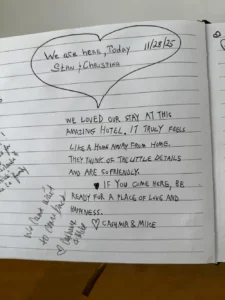 We are here, Today 11/28/25
Stan & Christina
WE LOVED OUR STAY AT THIS
AMAZING HOTEL. IT TRULY FEELS
LIKE A HOME AWAY FROM HOME.
THEY THINK OF THE LITTLE DETAILS
AND ARE SO FRIENDLY.
IF YOU COME HERE, BE
READY FOR A PLACE OF LOVE AND
HAPPINESS.
CASHMIR & MIKE
to come back